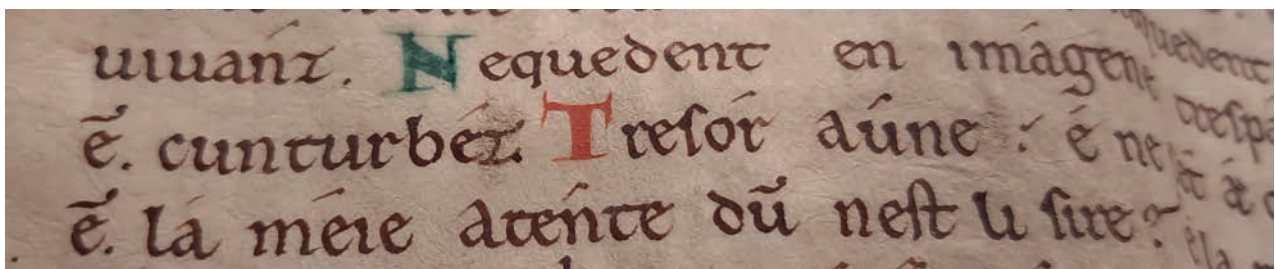 uiuánz. Nequedent en imágene
ē. cunturbéz. Tresór aúne : é ne
ē. lá méie aténte dū nest li sire?